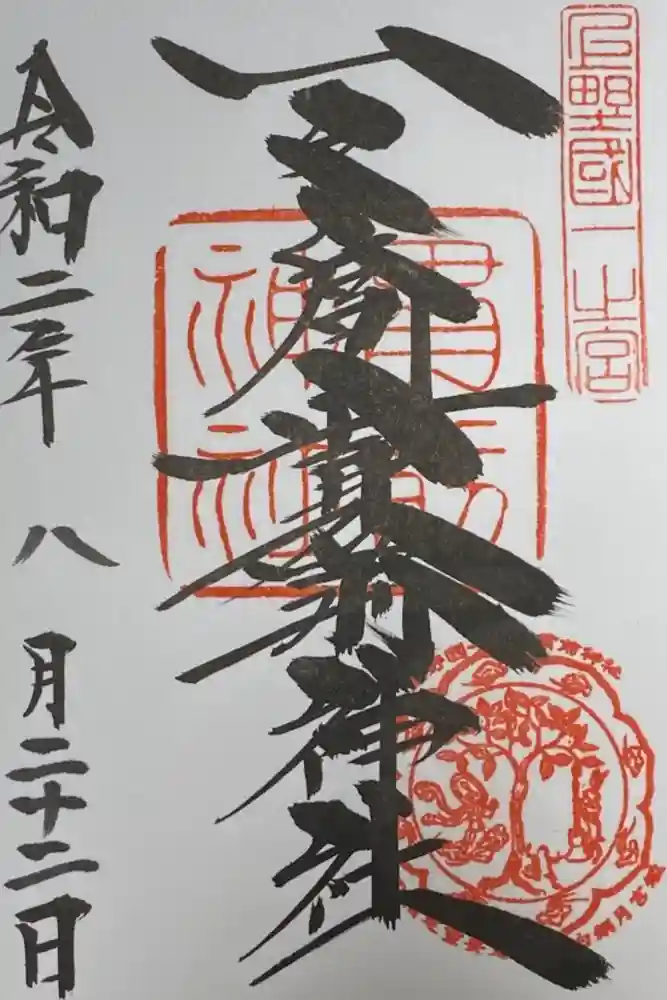 上野國一之宮
一之宮貫前神社
貫前
神社
令和二年八月二十二日